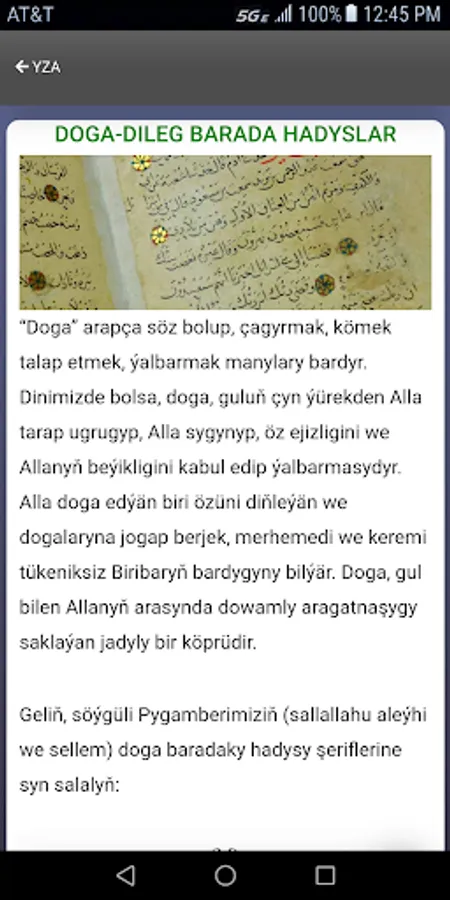 AT&T 5GE 100% 12:45 PM
← YZA
DOGA-DILEG BARADA HADYSLAR
“Doga” arapça söz bolup, çagyrmak, kömek
talap etmek, ýalbarmak manylary bardyr.
Dinimizde bolsa, doga, guluň çyn ýürekden Alla
tarap ugrugyp, Alla sygynyp, öz ejizligini we
Allanyň beýikligini kabul edip ýalbarmasydyr.
Alla doga edýän biri özüni diňleýän we
dogalaryna jogap berjek, merhemedi we keremi
tükeniksiz Biribaryň bardygyny bilýär. Doga, gul
bilen Allanyň arasynda dowamly aragatnaşygy
saklaýan jadyly bir köprüdir.
Geliň, söýgüli Pygamberimiziň (sallallahu aleýhi
we sellem) doga baradaky hadysy şeriflerine
syn salalyň: